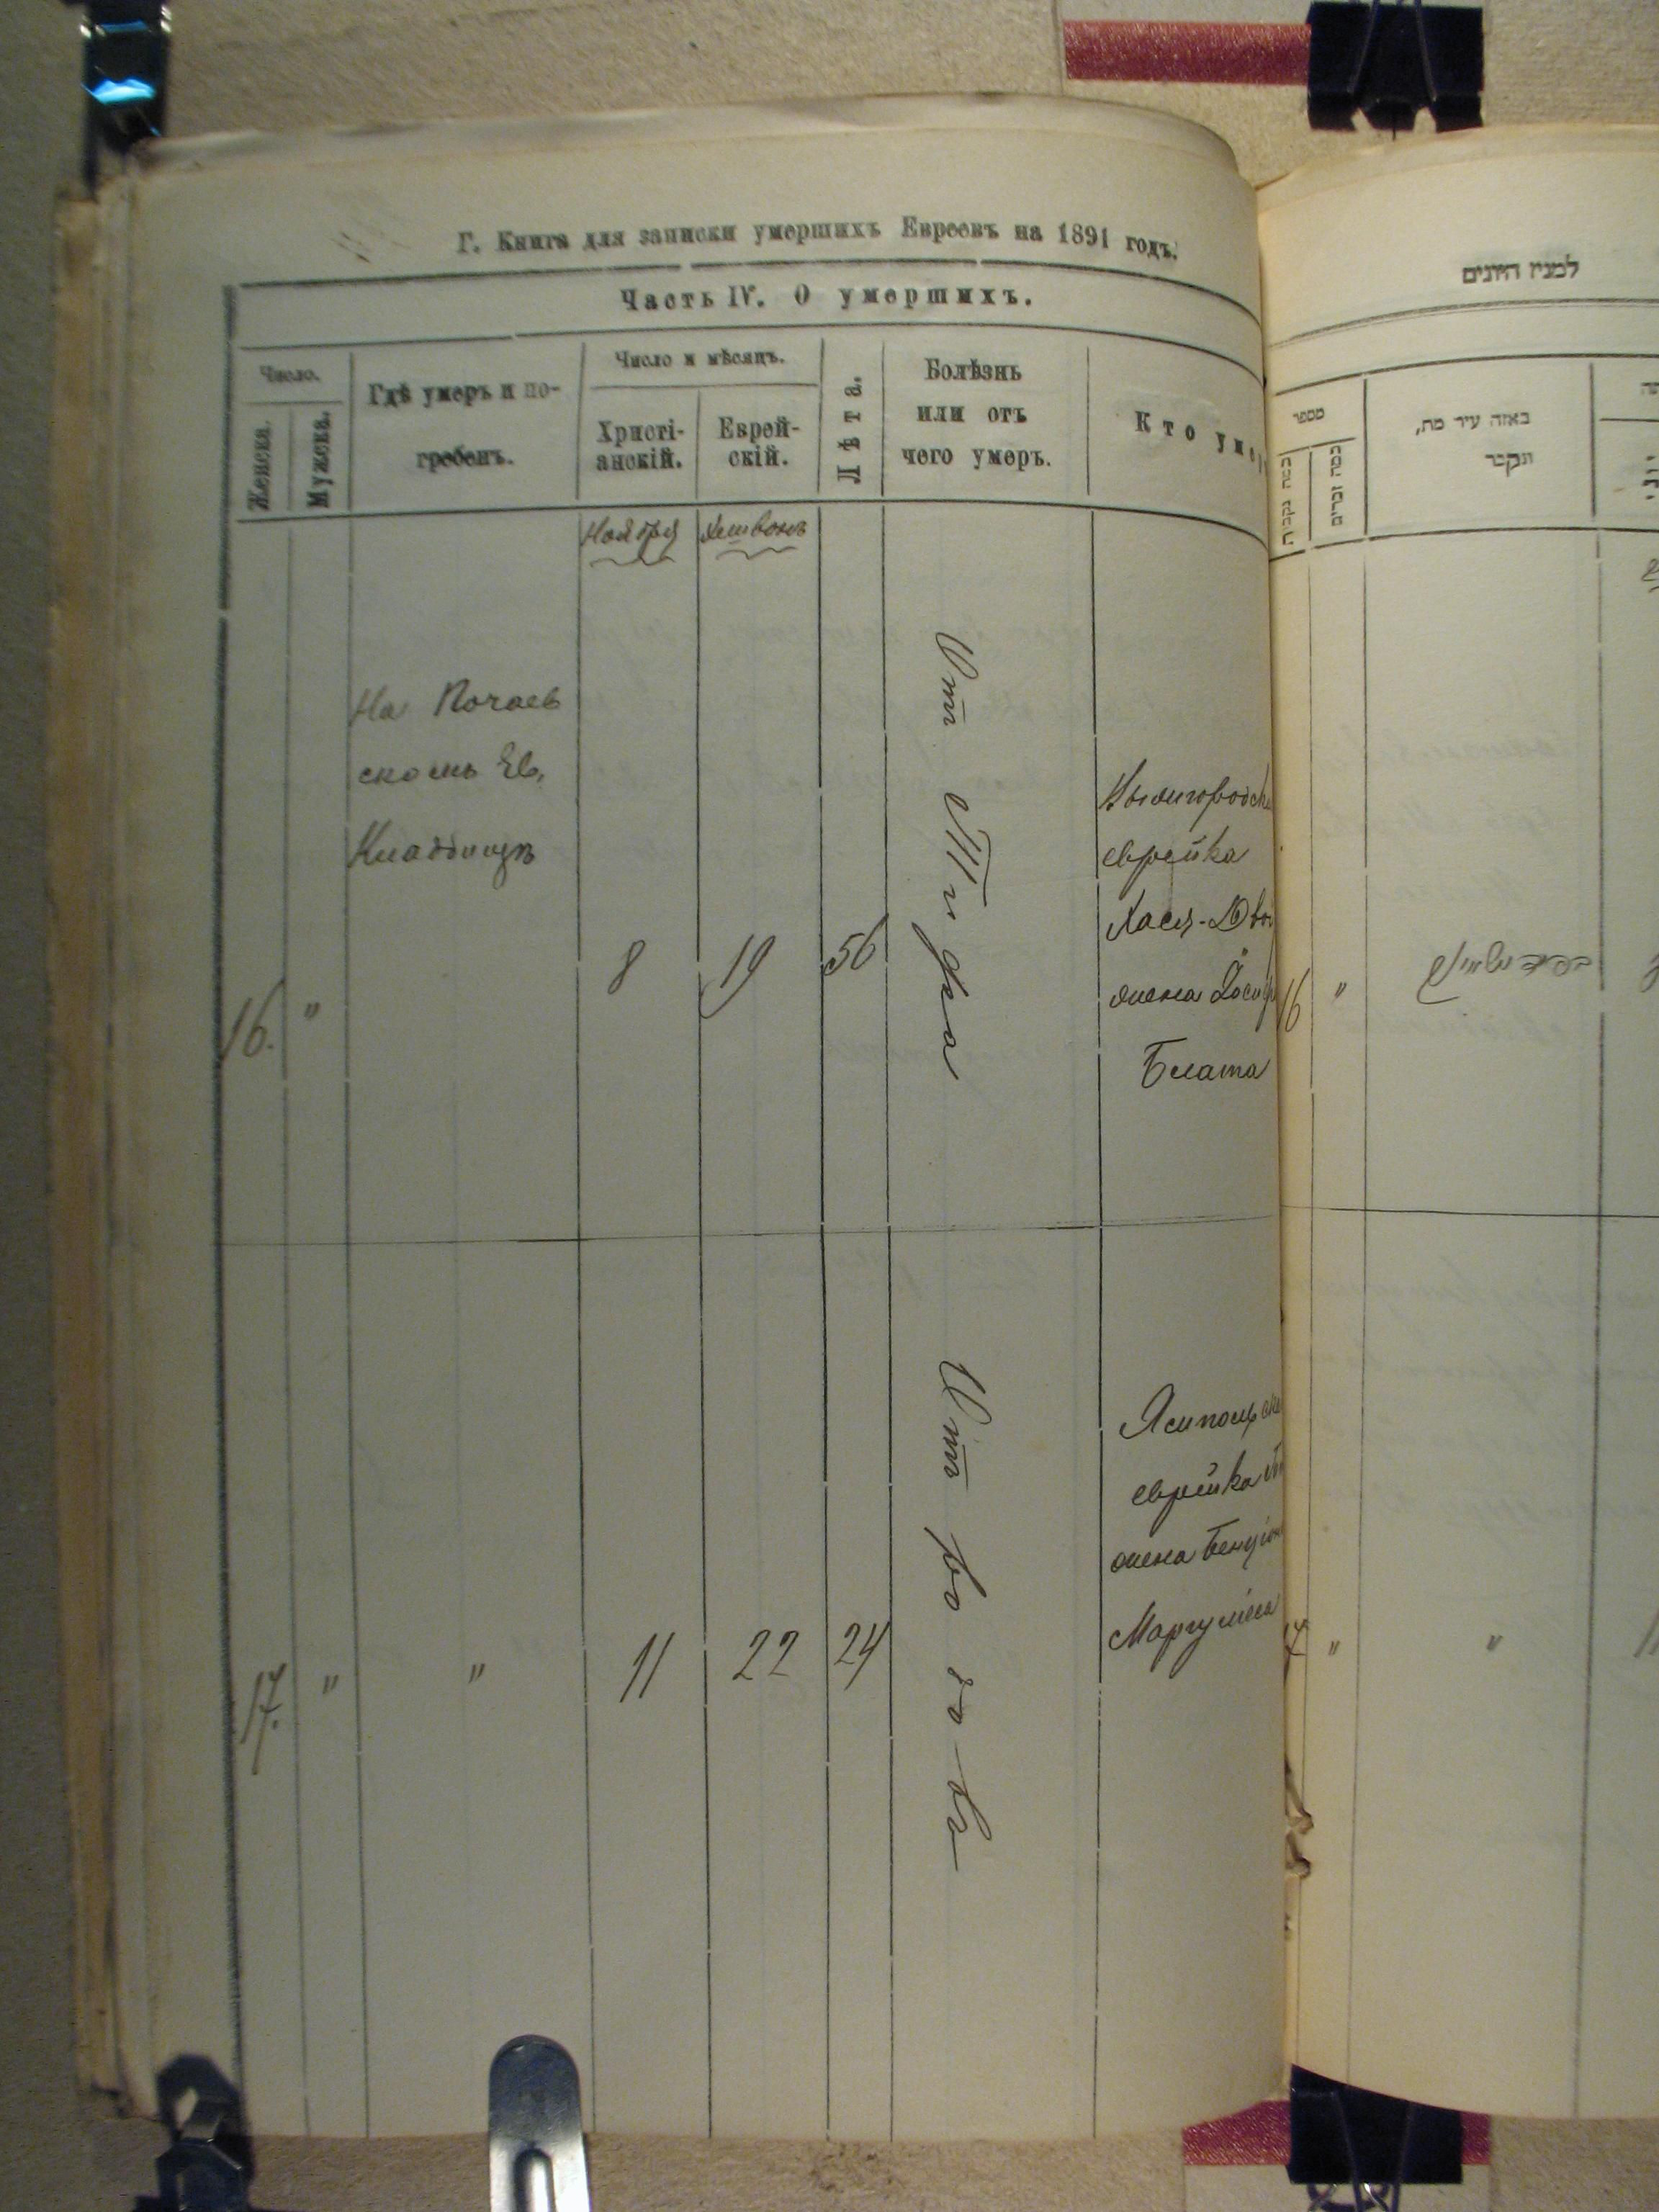 Г. Книга для записки умершихъ Евреевъ на 1891 годъ.
Часть IV. О умершихъ.
Число.
Женска.
Мужска.
Гдѣ умеръ и по-
гребенъ.
Число и мѣсяцъ.
Христі-
анскій.
Еврей-
скій.
Лѣта.
Болѣзнь
или отъ
чего умеръ.
Кто умер
Ноября
Хешвонъ
На Почаев
скомъ Ев.
Кладбищѣ
16.
"
8
19
56
Отъ Тифа
еврейка
Хася-Дво
жена Іось
Блата
17.
"
"
11
22
24
Отъ родовъ
Ямпольск
еврейка
жена Бенціон
Маргуліса
למנין היונים
מספר
כמה נקבות
כמה זכרים
באזה עיר מת,
ונקבר
16
"
17
"
"